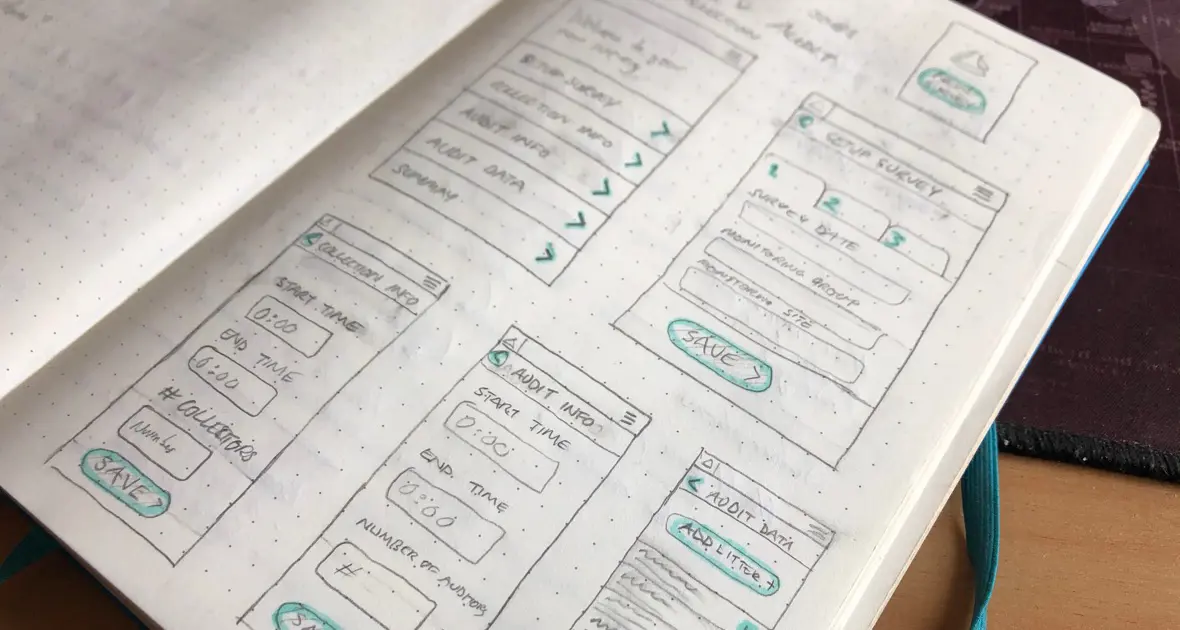 AUDIT
SETUP SURVEY
COLLECTION INFO
AUDIT INFO
AUDIT DATA
SUMMARY
SETUP SURVEY
1
2
3
SURVEY DATE
MONITORING GROUP
MONITORING SITE
SAVE >
COLLECTION INFO
START TIME
0:00
END TIME
0:00
# COLLECTORS
Number
SAVE >
AUDIT INFO
START TIME
0:00
END TIME
0:00
NUMBER OF AUDITORS
#
AUDIT DATA
ADD LITTER +